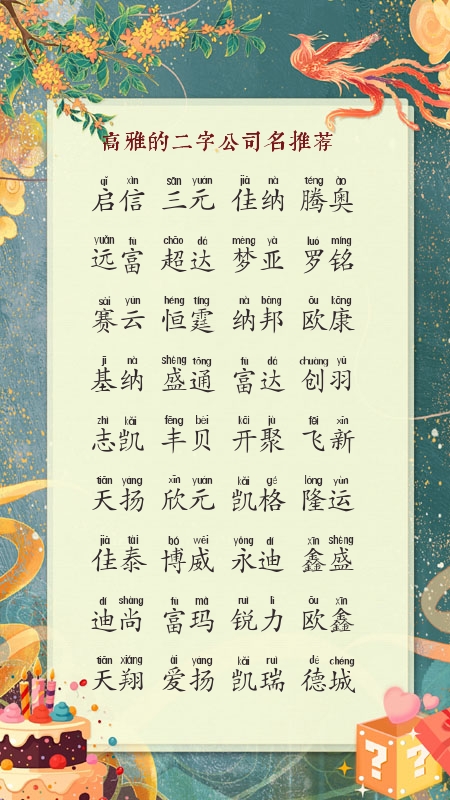 高雅的二字公司名推荐
qǐ xìn sān yuán jiā nà téng ào
启信 三元 佳纳 腾奥
yuǎn fù chāo dá mèng yà luó míng
远富 超达 梦亚 罗铭
sài yún héng tíng nà bāng ōu kāng
赛云 恒霆 纳邦 欧康
jī nà shèng tōng fù dá chuàng yǔ
基纳 盛通 富达 创羽
zhì kǎi fēng bèi kāi jù fēi xīn
志凯 丰贝 开聚 飞新
tiān yáng xīn yuán kǎi gé lóng yùn
天扬 欣元 凯格 隆运
jiā tài bó wēi yǒng dí xīn shèng
佳泰 博威 永迪 鑫盛
dí shàng fù mǎ ruì lì ōu xīn
迪尚 富玛 锐力 欧鑫
tiān xiáng ài yáng kǎi ruì dé chéng
天翔 爱扬 凯瑞 德城
? ?